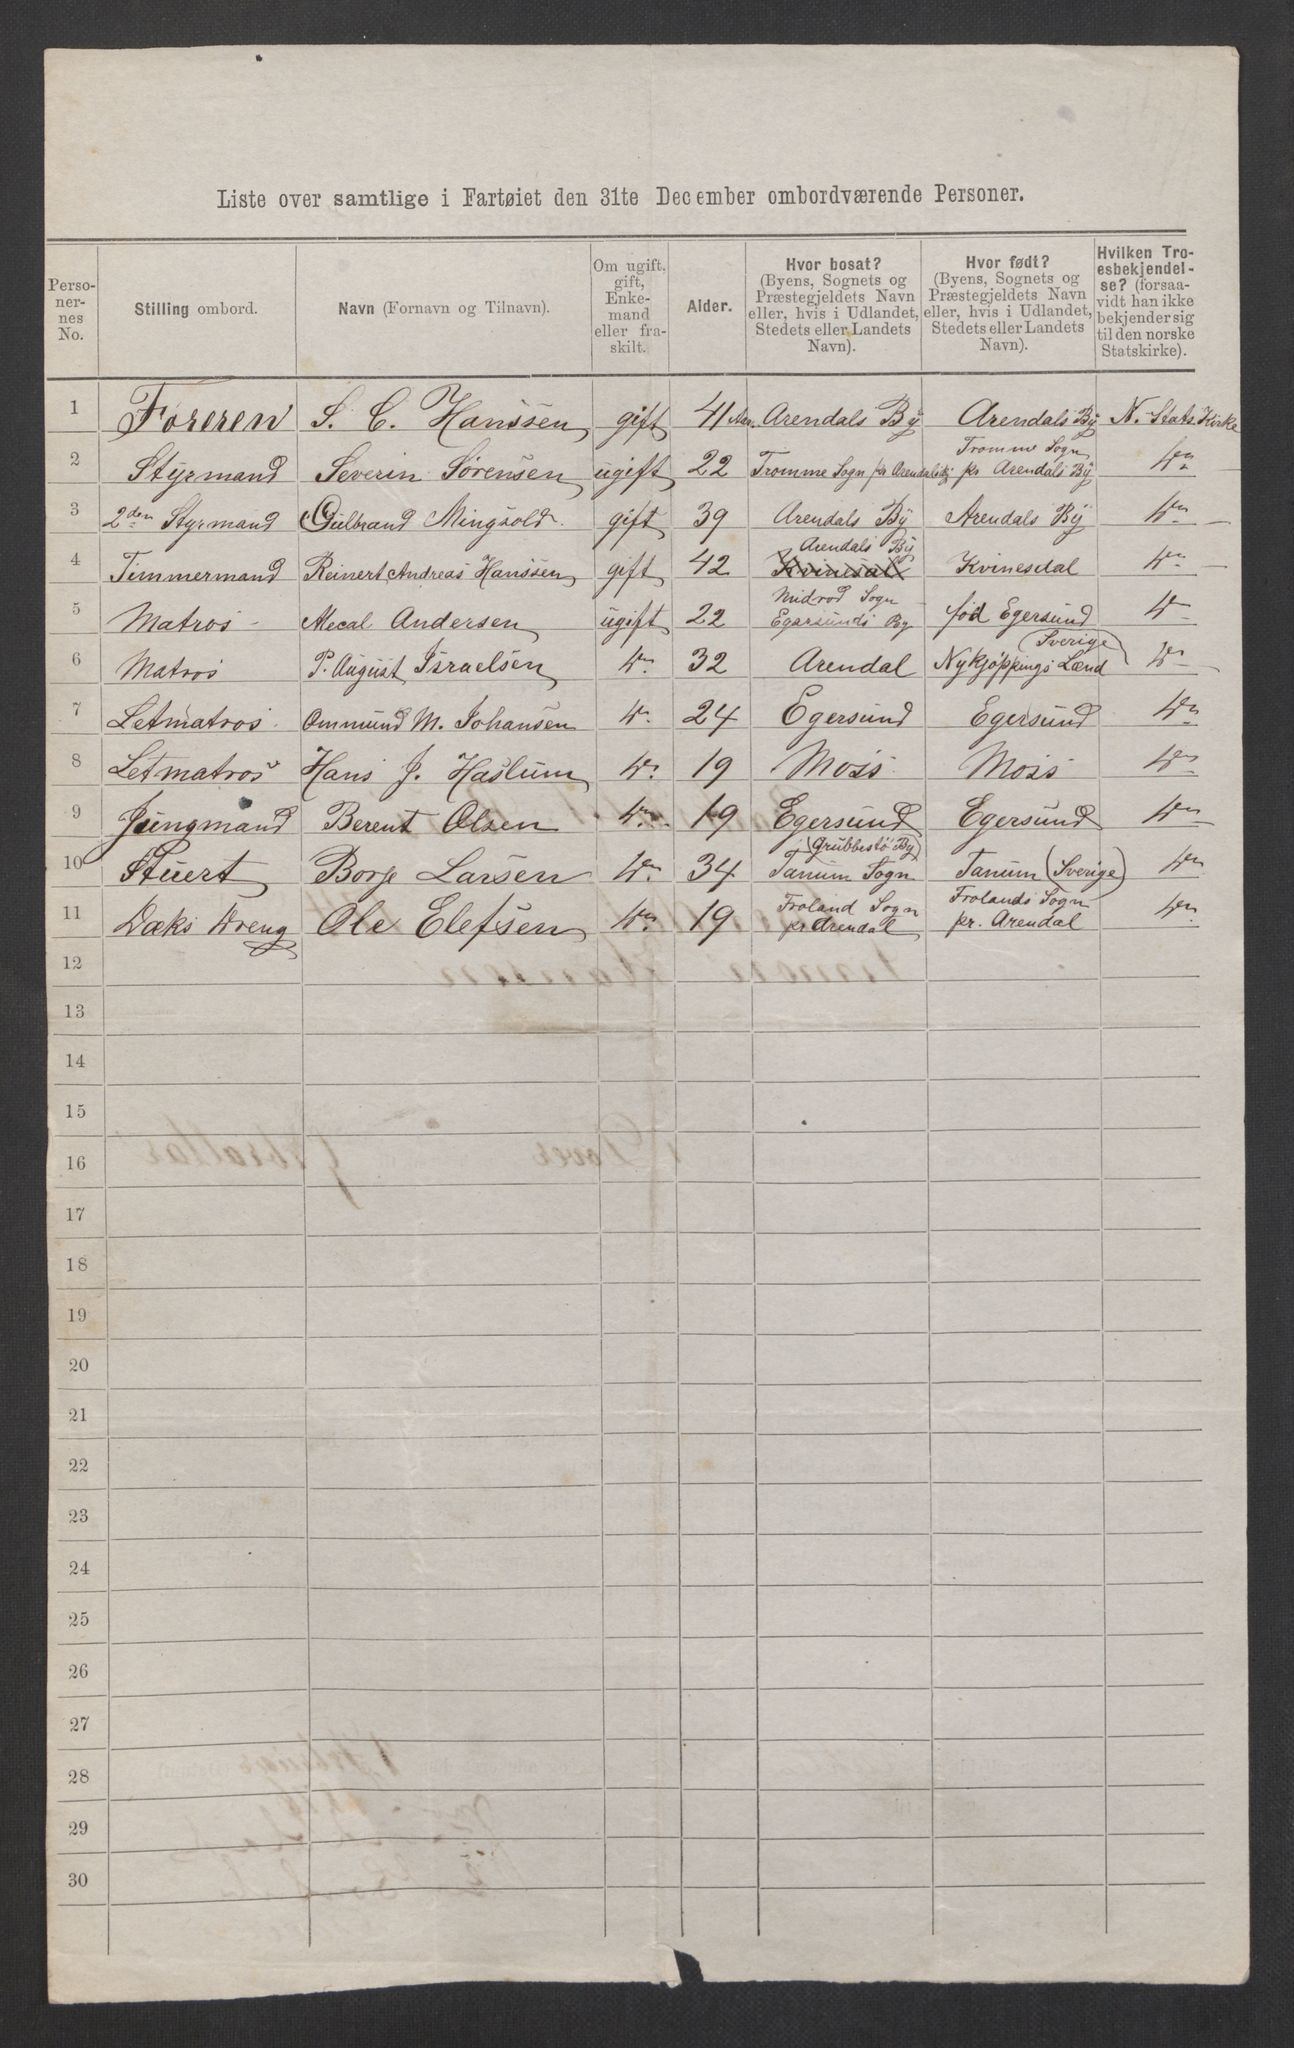 Liste over samtlige i Fartøiet den 31te December ombordværende Personer.
Perso-
ner-
nes
No.
Stilling ombord.
Navn (Fornavn og Tilnavn).
Om ugift,
gift,
Enke-
mand
eller fra-
skilt.
Alder.
Hvor bosat?
(Byens, Sognets og
Præstegjeldets Navn
eller, hvis i Udlandet,
Stedets eller Landets
Navn).
Hvor født?
(Byens, Sognets og
Præstegjeldets Navn
eller, hvis i Udlandet,
Stedets eller Landets
Navn).
Hvilken Tro-
esbekjendel-
se? (forsaa-
vidt han ikke
bekjender sig
til den norske
Statskirke).
1 Føreren S. C. Hanssen gift 41 Aar. Arendals By Arendals By N. Stats Kirke
Tromme Sogn
2 Styrmand Severin Sørensen ugift 22 Tromme Sogn pr Arendals By pr Arendals By Do
3 2den Styrmand Gulbrand Mingsold gift 39 Arendals By Arendals By Do
Arendals By
4 Timmermand Reinert Andreas Hanssen gift 42 Kvinesdal Kvinesdal Do
Sogn
5 Matros Mecal Andersen ugift 22 Egersunds By fød Egersund Do
(Sverige)
6 Matros P. August Israelsen Do 32 Arendal Nykjøppings Lænd Do
7 Letmatros Ommund M. Johansen Do 24 Egersund Egersund Do
8 Letmatros Hans J. Haslum Do 19 Moss Moss Do
9 Jungmand Berent Olsen Do 19 Egersund Egersund Do
(Grubbestø By)
10 Stuert Borge Larsen Do 34 Tanum Sogn Tanum (Sverige) Do
Froland Sogn Frolands Sogn
11 Dæks Dreng Ole Elefsen Do 19 pr Arendal pr. Arendal Do
12
13
14
15
16
17
18
19
20
21
22
23
24
25
26
27
28
29
30